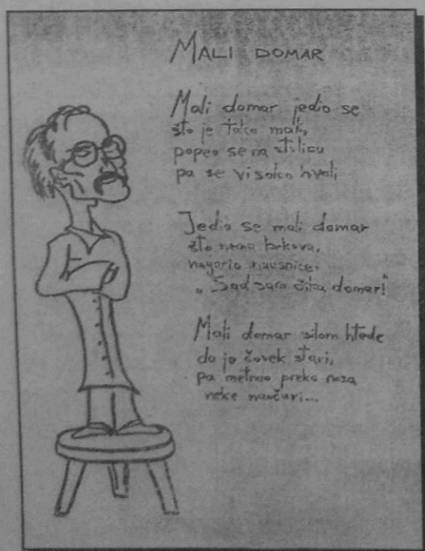 MALI DOMAR
Mali domar jedio se
što je tako mali,
popeo se na stolicu
pa se visoko hvali
Jedio se mali domar
što nema brkova,
nagario nausnice:
„Sad sam čika domar!"
Mali domar silom htede
da je čovek stari,
pa metnuo preko nosa
neke naočari...